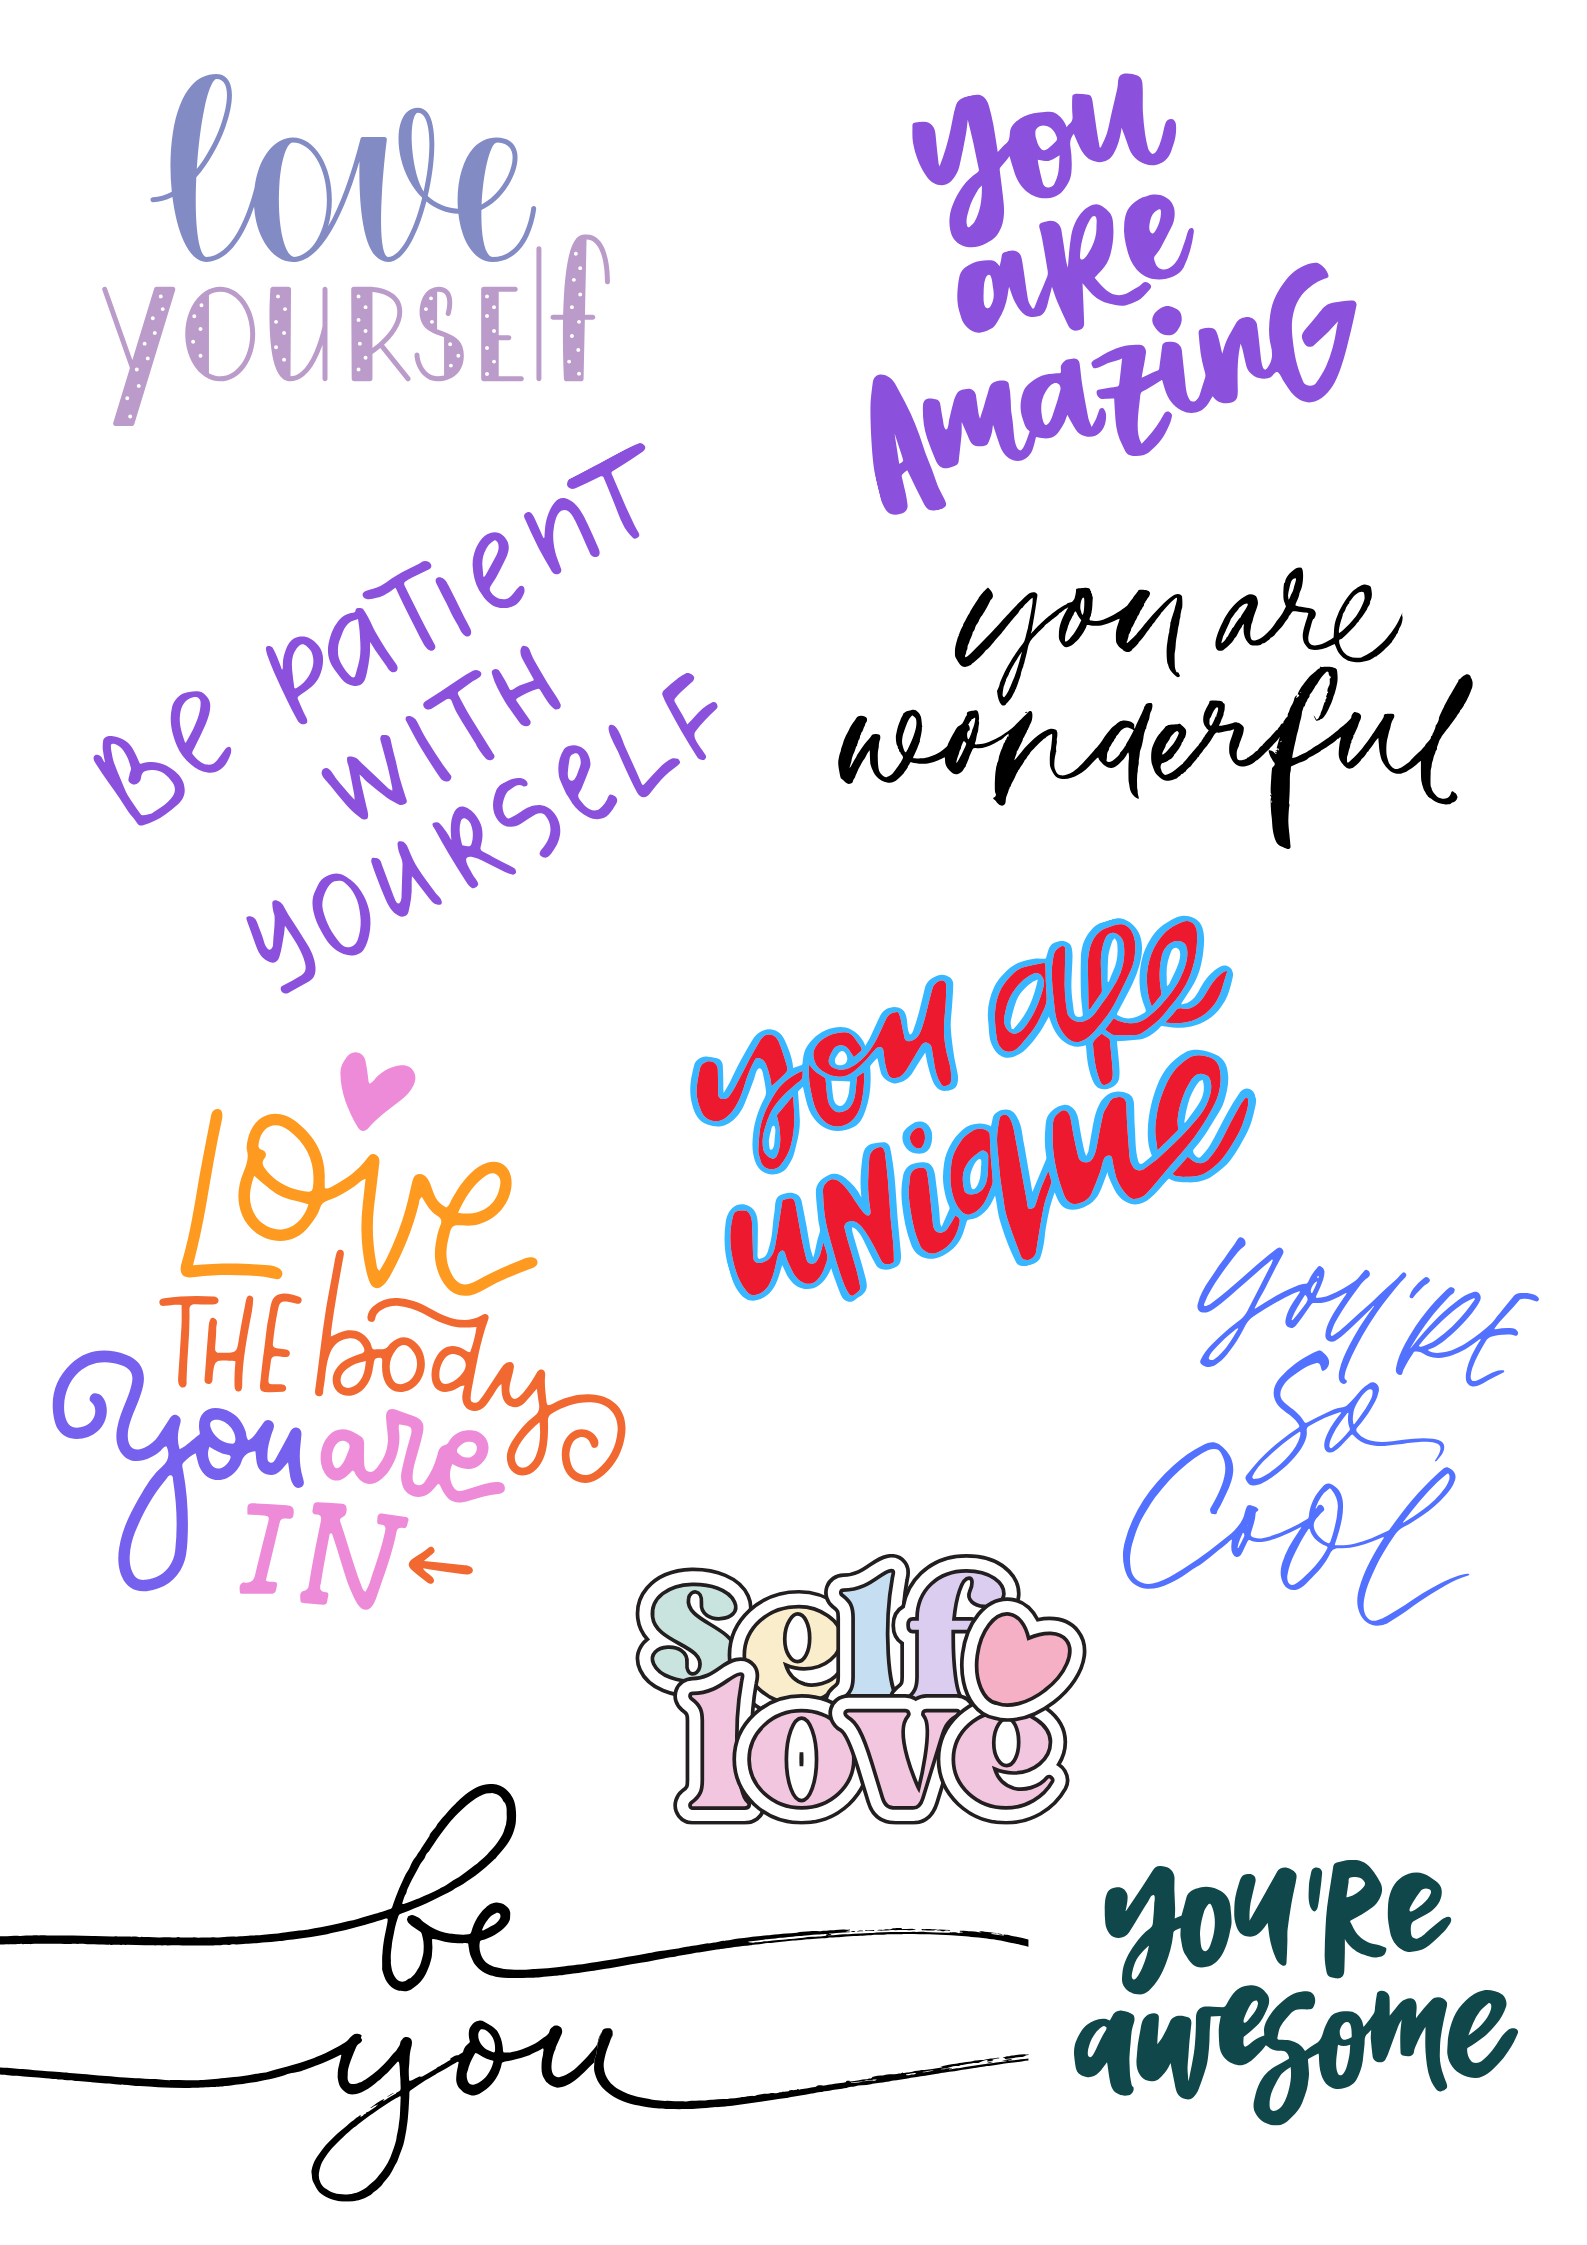 love
yourself
you
are
AmazinG
Be PaTienT
WITH
YOURSELF
you are
wonderful
you are
uNique
Love
THE body
you are
IN
you'RE
So
Cool
self
love
be
you
you'Re
awesome